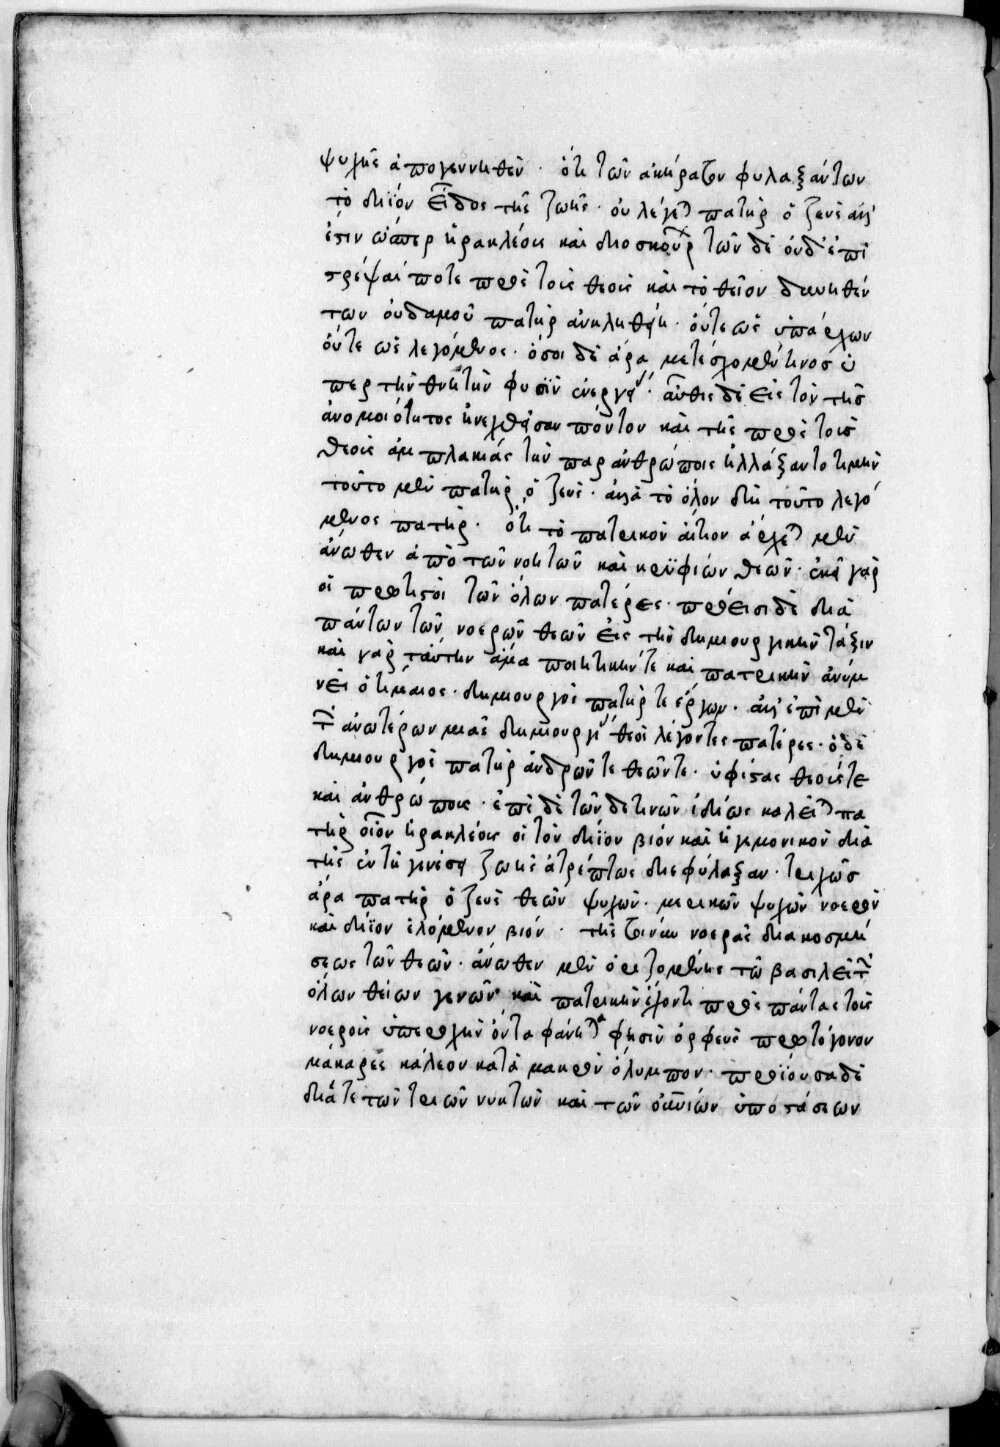 ψυχῆς ἀπογεννηθέν. ὅτι τῶν ἀκήρατον φυλαξάντων
τὸ δήϊον εἶδος τῆς ζωῆς. οὐ λέγεται πατὴρ ὁ ζεὺς ἀλλ'
ἔστιν ὥσπερ ἡρακλέους καὶ διοσκούρων τῶν δὲ οὐδ' ἐπι
στρέψαί ποτε πρὸς τοὺς θεοὺς καὶ τὸ θεῖον δυνηθέν
των οὐδαμοῦ πατὴρ ἀνεκλήθη. οὔτε ὡς ὑπάρχων
οὔτε ὡς λεγόμενος. ὅσοι δὲ ἄρα μετέσχομεν τινὸς ὑ
περ τὴν θνητὴν φύσιν ἐνεργείας. αὖθις δὲ εἰς τὸν τῆς
ἀνομοιότητος ἠνέχθησαν πόντον καὶ τῆς πρὸς τοὺς
θεοὺς ἀμπλακίας τὴν παρ ἀνθρώποις ἠλλάξαντο τιμὴν
τούτο μὲν πατὴρ ὁ ζεύς. ἀλλὰ τὸ ὅλον δὴ τοῦτο λεγό
μενος πατὴρ. ὅτι τὸ πατρικὸν αἴτιον ἄρχεται μὲν
ἄνωθεν ἀπὸ τῶν νοητῶν καὶ κρυφίων θεῶν. ἐκεῖ γὰρ
οἱ πρώτιστοι τῶν ὅλων πατέρες. πρόεισι δὲ διὰ
πάντων τῶν νοερῶν θεῶν εἰς τὴν δημιουργικὴν τάξιν
καὶ γὰρ ταύτην ἅμα ποιητικήν τε καὶ πατρικὴν ἀνυμ
νεῖ ὁ τίμαιος. δημιουργὸς πατήρ τε ἔργων. ἀλλ' ἐπὶ μὲν
τῶν ἀνωτέρων μιᾶς δημιουργίας θεοὶ λέγονται πατέρες. ὁ δὲ
δημιουργὸς πατὴρ ἀνδρῶν τε θεῶν τε. ὑφίστας θεούς τε
καὶ ἀνθρώπους. ἐπὶ δὲ τῶν δὲ τινῶν ἰδίως καλεῖται πα
τὴρ οἷον ἡρακλέους οἱ τὸν δήϊον βίον καὶ ἡγεμονικὸν διὰ
τῆς ἐν τῇ γενέσει ζωῆς ἀτρέπτως διεφύλαξαν. τριχῶς
ἄρα πατὴρ ὁ ζεὺς θεῶν ψυχῶν. μερικῶν ψυχῶν νοερὸν
καὶ δήϊον ἑλόμενον βίον. τῆς τοίνυν νοερᾶς διακοσμή
σεως τῶν θεῶν. ἄνωθεν μὲν ὁριζομένης τῶ βασιλεῖ τῶν
ὅλων θείων γενῶν καὶ πατρικὴν ἔχοντι πρὸς πάντας τοὺς
νοεροὺς ὑπεροχὴν ὄντα φάνητα φησὶν ὀρφεὺς πρωτόγονον
μάκαρες κάλεον κατὰ μακρὸν ὄλυμπον. προϊούσα δὲ
διά τε τῶν τριῶν νυκτῶν καὶ τῶν οὐρανίων ὑποστάσεων